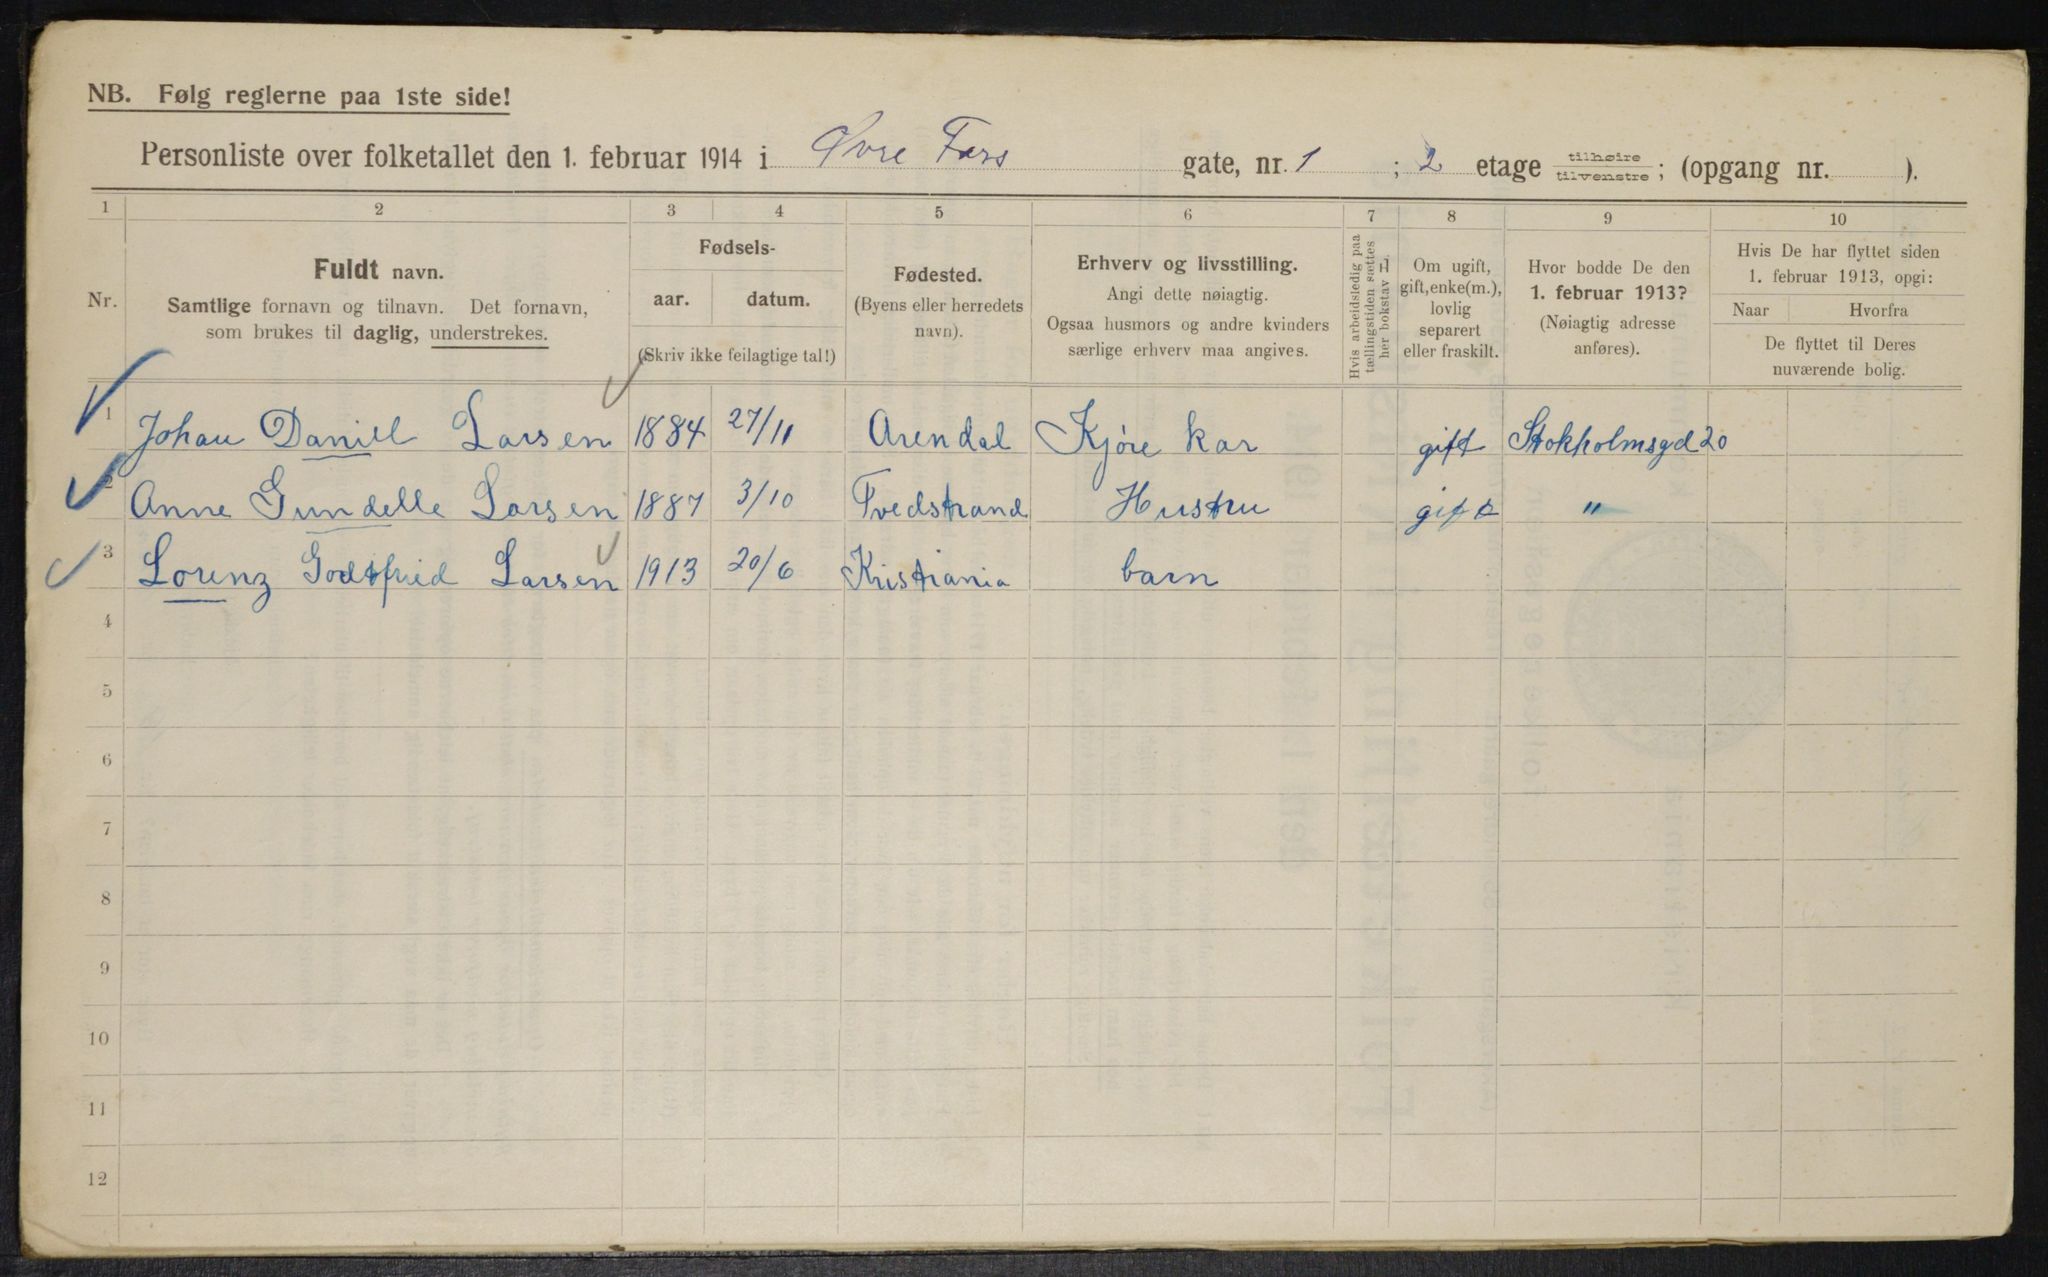 NB. Følg reglerne paa 1ste side!
Personliste over folketallet den 1. februar 1914 i Øvre Fors gate, nr. 1 ; 2 etage tilhøire tilvenstre ; (opgang nr. ).
1 2 3 4 5 6 7 8 9 10
Nr.
Fuldt navn.
Samtlige fornavn og tilnavn. Det fornavn,
som brukes til daglig, understrekes.
Fødsels-
aar. datum.
(Skriv ikke feilagtige tal!)
Fødested.
(Byens eller herredets
navn).
Erhverv og livsstilling.
Angi dette nøiagtig.
Ogsaa husmors og andre kvinders
særlige erhverv maa angives.
Hvis arbeidsledig paa
tællingstiden sættes
her bokstav L.
Om ugift,
gift, enke(m.),
lovlig
separert
eller fraskilt.
Hvor bodde De den
1. februar 1913?
(Nøiagtig adresse
anføres).
Hvis De har flyttet siden
1. februar 1913, opgi:
Naar Hvorfra
De flyttet til Deres
nuværende bolig.
1 Johan Daniel Larsen 1884 27/11 Arendal Kjøre kar gift Stokholmsgd 20
2 Anne Gundelle Larsen 1887 3/10 Tvedstrand Hustru gift "
3 Lorenz Godtfried Larsen 1913 20/6 Kristiania barn
4
5
6
7
8
9
10
11
12